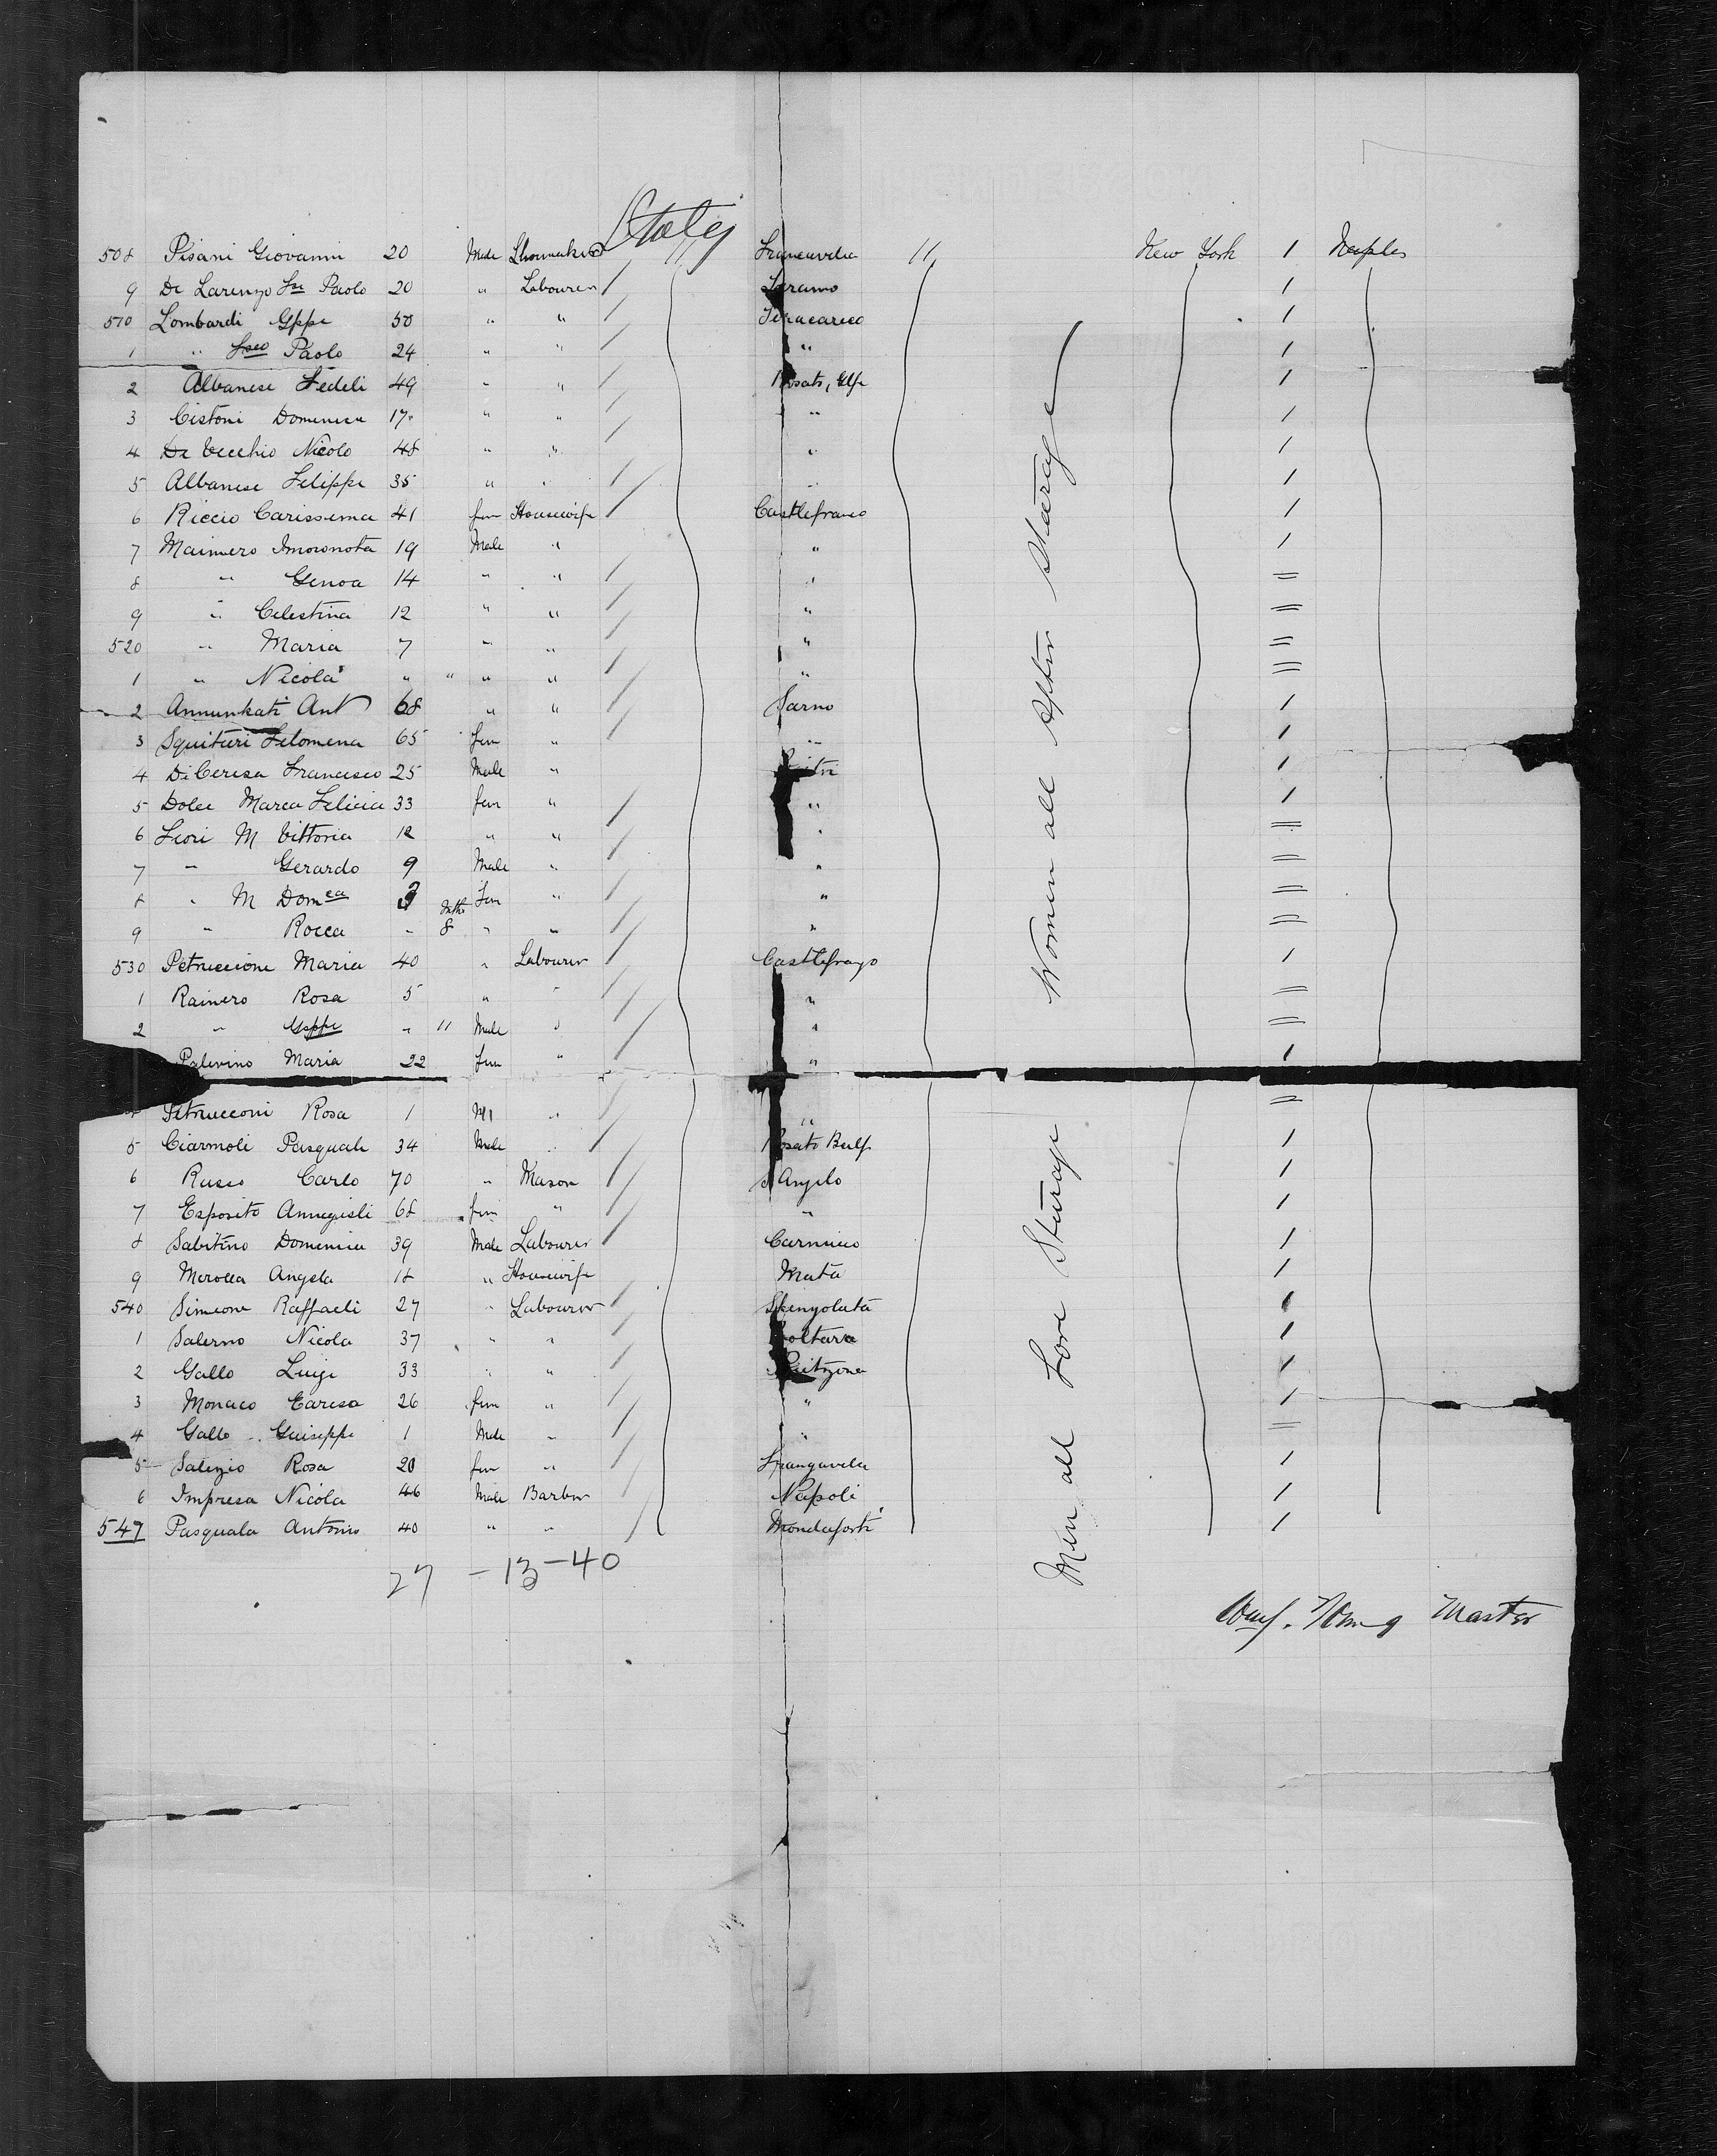 508 Pisani Giovanni 20 Male Shoemaker Italy Francavilla 11 New York 1 Naples
9 Di Larenzo Paolo 20 " Labourer Teramo 1
510 Lombardi Gppe 50 " " 1
1 " Paolo 24 " " " 1
2 Albanese Fedeli 49 " " 1
3 Cistoni Domenica 17 " " " 1
4 De Vecchio Nicolo 48 " " " 1
5 Albanese Felippe 35 " " " 1
6 Riccio Carissema 41 fem Housewife Castlefranco 1
7 Mainiero 19 Male " " 1
8 " Genoa 14 " " " =
9 " Celestina 12 " " " =
520 " Maria 7 " " " =
1 " Nicola " " " " " =
2 Annunkati Ant 68 " " Sarno 1
3 Squitieri Filomena 65 fem " " 1
4 Di Ceresa Francisco 25 Male " 1
5 Dolce Maria Felicia 33 fem " " 1
6 Fiori M Vittoria 12 " " " =
7 " Gerardo 9 Male " " =
8 " M Domca 3 Fem " " =
9 " Rocca - Mths 8 " " " =
530 Petruccione Maria 40 " Labourer Castlefrago 1
1 Rainero Rosa 5 " " " =
2 " Gsppe " 11 Male " " =
Palevino Maria 22 fem " " 1
Petrucconi Rosa 1 " " =
5 Ciarmoli Pasquale 34 Male " Rosato Bulf 1
6 Russo Carlo 70 " Mason S Angelo 1
7 Esposito 68 fem " " 1
8 Sabitino Domenica 39 Male Labourer 1
9 Merolla Angela 18 " Housewife Mata 1
540 Simeone Raffaeli 27 " Labourer 1
1 Salerno Nicola 37 " " 1
2 Gallo Luigi 33 " " 1
3 Monaco Caresa 26 fem " " 1
4 Gallo Guiseppe 1 Male " " =
5 Salezio Rosa 20 fem " Frangavella 1
6 Impresa Nicola 46 Male Barber Napoli 1
547 Pasquala Antonio 40 " " 1
27 - 13 - 40
Women all After Steerage
Men all Fore Steerage
Young Master